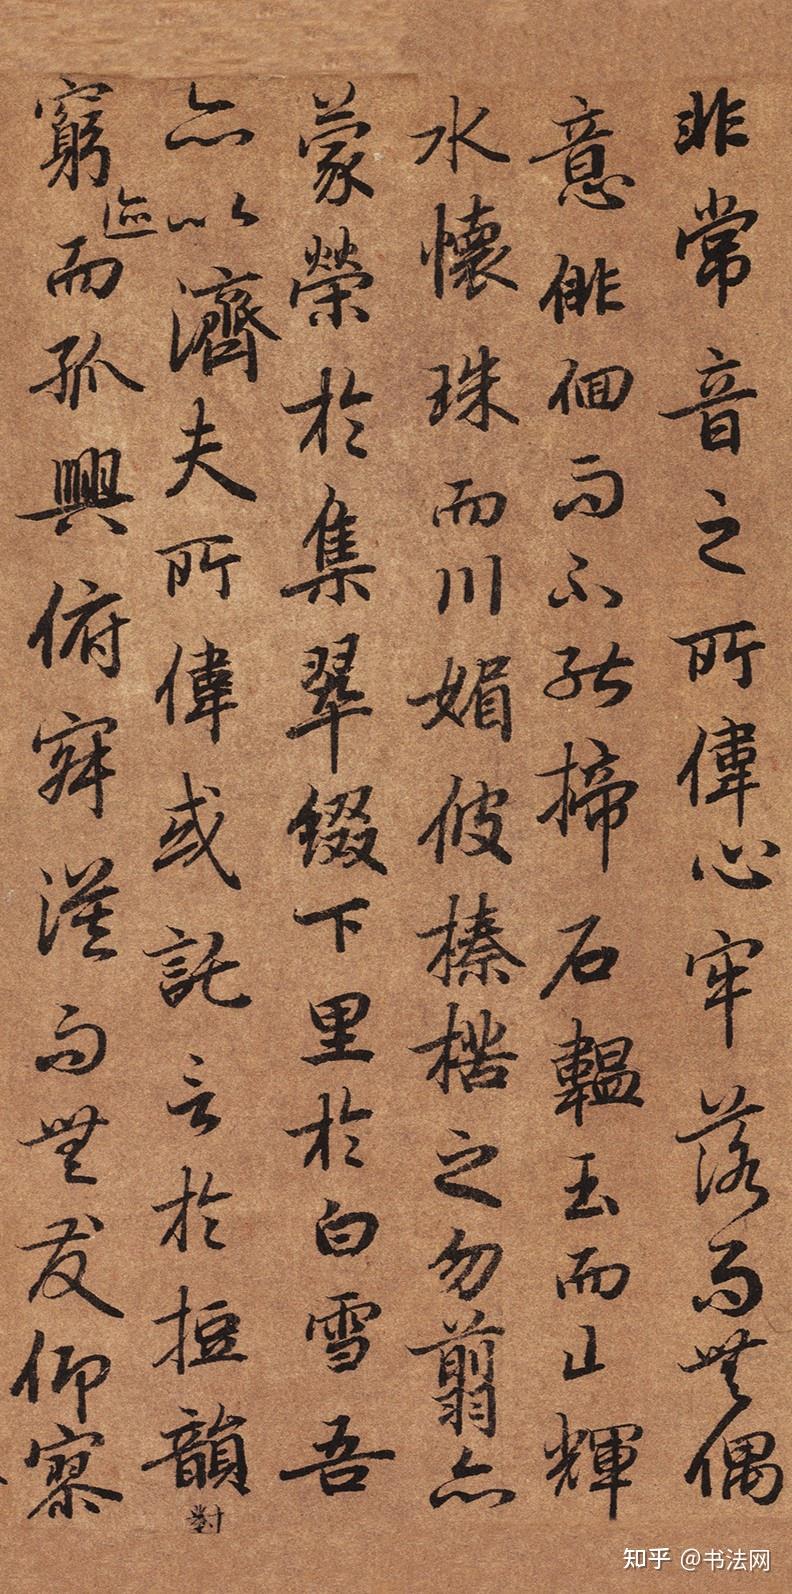 非常音之所偉心牢落而無偶
意俳佪而不能揥石韞玉而山輝
水懷珠而川媚彼榛楛之勿翦亦
蒙榮於集翠綴下里於白雪吾
亦以濟夫所偉或託言於短韻
對
窮迹而孤興俯寂漠而無友仰寥
知乎 @书法网